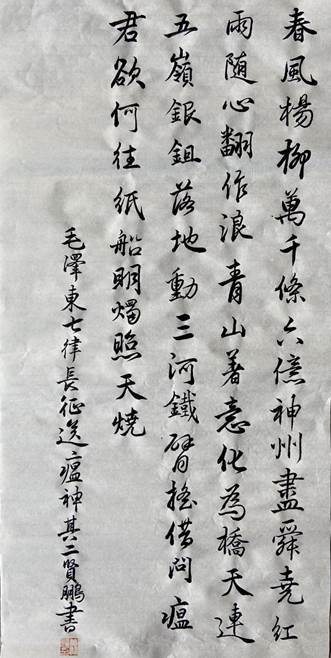 春風楊柳萬千條六億神州盡舜堯紅
雨随心翻作浪青山著意化為橋天連
五嶺銀鉏落地動三河鐵臂搖借問瘟
君欲何往紙船明燭照天燒
毛澤東七律長征送瘟神其二賢鵬書